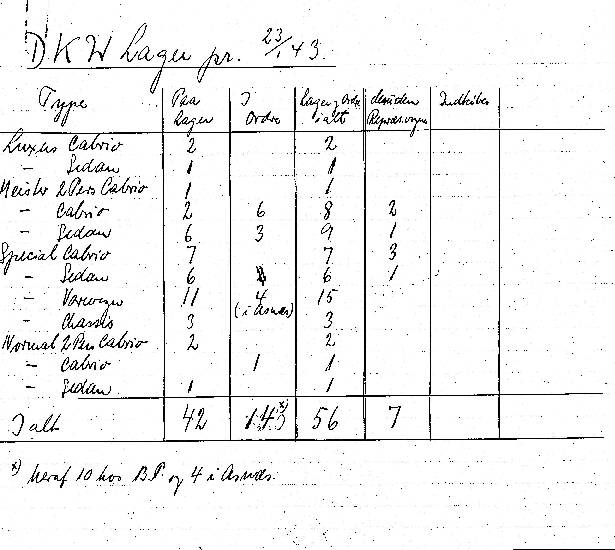 DKW Lager pr. 23/1 43.
Type Paa Lager I Ordre Lager & Ordre i alt desuden Repræs.vogne Indkøber
Luxus Cabrio 2 2
- Sedan 1 1
Meister 2 Pers Cabrio 1 1
- Cabrio 2 6 8 2
- Sedan 6 3 9 1
Special Cabrio 7 7 3
- Sedan 6 6 1
- Varevogn 11 4 15
(i Asnæs)
- Chassis 3 3
Normal 2 Pers Cabrio 2 2
- Cabrio 1 1
- Sedan 1 1
I alt 42 14 x) 56 7
x) heraf 10 hos B.P. og 4 i Asnæs.